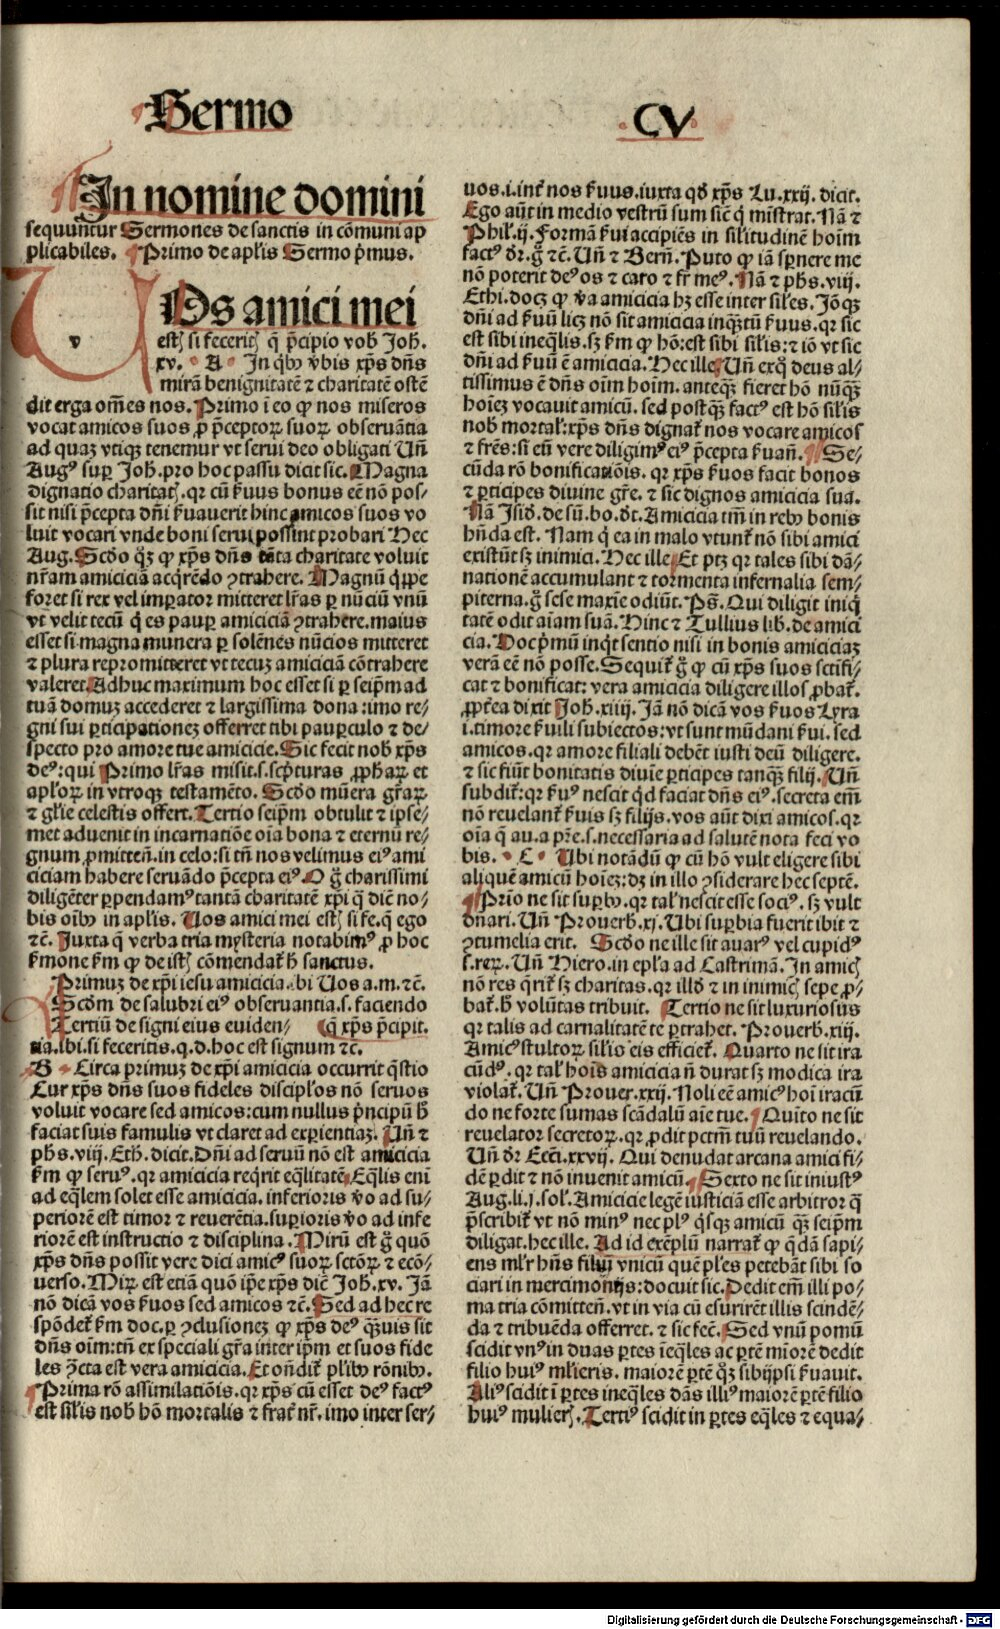 Sermo
CV
In nomine domini
sequuntur Sermones de sanctis in cōmuni ap
plicabiles. Primo de apl̄is Sermo p̄mus.
VOs amici mei
v
estꝭ si feceritꝭ q̄ p̄cipio vob̄ Joh̄.
xv. A In qͥbꝰ v̄bis xp̄s dn̄s
mirā benignitatē ⁊ charitatē ostē
dit erga om̄es nos. Primo ī eo ꝙ nos miseros
vocat amicos suos ꝓ p̄ceptoꝝ suoꝝ obseruātia
ad quaꝫ vtiqꝫ tenemur vt serui deo obligati Un̄
Augꝰ suꝑ Joh̄. pro hoc passu dicit sic. Magna
dignatio charitatꝭ. qꝛ cū ẜuus bonus eē nō pos⸗
sit nisi p̄cepta dn̄i ẜuauerit hinc amicos suos vo
luit vocari vnde boni serui possint probari Hec
Aug. Scd̄o qͦꝫ ꝙ xp̄s dn̄s tāta charitate voluit
nr̄am amiciciā acq̄rēdo ꝯtrahere. Magnū qͥppe
foret si rex vel imꝑator mitteret lr̄as ꝑ nūciū vnū
vt velit tecū qͥ es pauꝑ amiciciā ꝯtrahere. maius
esset si magna munera ꝑ solēnes nūcios mitteret
⁊ plura repromitteret vt tecuꝫ amiciciā cōtrahere
valeret. Adhuc maximum hoc esset si ꝑ seip̄m ad
tuā domuꝫ accederet ⁊ largissima dona: imo re⸗
gni sui ꝑticipationeꝫ offerret tibi pauꝑculo ⁊ de⸗
specto pro amore tue amicicie. Sic fecit nob̄ xp̄s
deꝰ: qui Primo lr̄as misit. s. scp̄turas ꝓph̄aꝝ et
apl̄oꝝ in vtroqꝫ testamēto. Scd̄o mūera gr̄aꝝ
⁊ gl̄ie celestis offert. Tertio seip̄m obtulit ⁊ ip̄se⸗
met aduenit in incarnatiōe oīa bona ⁊ eternū re⸗
gnum ꝓmitteñ. in celo: si tn̄ nos velimus eiꝰ ami
ciciam habere seruādo p̄cepta eiꝰ. O g̊ charissimi
diligēter ꝑpendamꝰ tantā charitatē xp̄i qͥ diē no⸗
bis oībꝰ in apl̄is. Uos amici mei estꝭ si fe. q̄ ego
⁊c̄. Juxta q̄ verba tria mysteria notabimꝰ ꝓ hoc
ẜmone ẜm ꝙ de istꝭ cōmendat̄ h̄ sanctus.
Primuꝫ de xp̄i iesu amicicia. ibi Uos a. m. ⁊c̄.
Scd̄m de salubri eiꝰ obseruantia. s. faciendo
Tertiū de signi eius euiden⸗ q̄ xp̄s p̄cipit.
tia. ibi. si feceritis. q. d. hoc est signum ⁊c.
B Circa primuꝫ de xp̄i amicicia occurrit q̄stio
Cur xp̄s dn̄s suos fideles discipl̄os nō seruos
voluit vocare sed amicos: cum nullus p̄ncipū h̄
faciat suis famulis vt claret ad exꝑientiaꝫ. Un̄ ⁊
ph̄s. viij. Eth. dicit. Dn̄i ad seruū nō est amicicia
ẜm ꝙ seruꝰ. qꝛ amicicia reqͥrit eq̄litatē. Eq̄lis eni
ad eq̄lem solet esse amicicia. inferioris v̄o ad su⸗
periorē est timor ⁊ reuerētia. suꝑioris v̄o ad infe
riorē est instructio ⁊ disciplina. Mirū est g̊ quō
xp̄s dn̄s possit vere dici amicꝰ suoꝝ sctōꝝ ⁊ ecō⸗
uerso. Miꝝ est etiā quō ip̄e xp̄s diē Joh̄. xv. Jā
nō dicā vos ẜuos sed amicos ⁊c̄. Sed ad hec re
spōdet̄ ẜm doc. ꝑ ꝯclusioneꝫ ꝙ xp̄s deꝰ qͣꝫuis sit
dn̄s oīm: tn̄ ex speciali gr̄a inter ip̄m et suos fide
les ꝯ̄tcta est vera amicicia. Et on̄dit̄ pl̄ibꝰ rōnibꝰ.
Prima rō assimilatiōis. qꝛ xp̄s cū esset deꝰ factꝰ
est sil̄is nob̄ hō mortalis ⁊ frat̄ nr̄. imo inter ser⸗
uos. i. int̄ nos ẜuus. iuxta qd̄ xp̄s Lu. xxij. dicit.
Ego aūt in medio vestrū sum sic̄ qͥ mīstrat. Nā ⁊
Phil̄. ij. Formā ẜui accipiēs in sil̄itudinē hoīm
factꝰ d̄r. g̊ ⁊c̄. Un̄ ⁊ Bern̄. Puto ꝙ iā sꝑnere me
nō poterit deꝰ os ⁊ caro ⁊ fr̄ meꝰ. Nā ⁊ ph̄s. viij.
Ethi. doceꝫ ꝙ v̄a amicicia hꝫ esse inter sil̄es. Jō qͣꝫ
dn̄i ad ẜuū licꝫ nō sit amicicia inqͣꝫtū ẜuus. qꝛ sic
est sibi ineq̄lis. sꝫ ẜm ꝙ hō: est sibi sil̄is: ⁊ iō vt sic
dn̄i ad ẜuū ē amicicia. Hec ille. Un̄ ex qͦ deus al⸗
tissimus ē dn̄s oīm hoīm. anteqͣꝫ fieret hō nūqͣꝫ
hoīeꝫ vocauit amicū. sed postqͣꝫ factꝰ est hō sil̄is
nob̄ mortal̄: xp̄s dn̄s dignat̄ nos vocare amicos
⁊ fr̄es: si eū vere diligimꝰ eiꝰ p̄cepta ẜuan̄. Se⸗
cūda rō bonificatiōis. qꝛ xp̄s ẜuos facit bonos
⁊ ꝑticipes diuine gr̄e. ⁊ sic dignos amicicia sua.
Nā Isid̄. de sū. bo. d̄t. Amicicia tm̄ in rebꝰ bonis
hn̄da est. Nam qͥ ea in malo vtunt̄ nō sibi amici
existūt sꝫ inimici. Hec ille. Et ptꝫ qꝛ tales sibi dā⸗
nationē accumulant ⁊ tormenta infernalia sem⸗
piterna. g̊ sese maxīe odiūt. Ps̄. Qui diligit iniqͥ
tatē odit aīam suā. Hinc ⁊ Tullius lib. de amici
cia. Hoc p̄mū inqͥt sentio nisi in bonis amiciciaꝫ
verā eē nō posse. Sequit̄ g̊ ꝙ cū xp̄s suos sctīfi⸗
cat ⁊ bonificat: vera amicicia diligere illos ꝓbat̄.
ꝓpt̄ea dixit Joh̄. xiiij. Jā nō dicā vos ẜuos Lyra
i. timore ẜuili subiectos: vt sunt mūdani ẜui. sed
amicos. qꝛ amore filiali debēt iusti deū diligere.
⁊ sic fiūt bonitatis diuīe ꝑticipes tanqͣꝫ filij. Un̄
subdit̄: qꝛ ẜuꝰ nescit qͥd faciat dn̄s eiꝰ. secreta em̄
nō reuelant̄ ẜuis sꝫ filijs. vos aūt dixi amicos. qꝛ
oīa q̄ au. a p̄re. s. necessaria ad salutē nota feci vo
bis. C Ubi notādū ꝙ cū hō vult eligere sibi
aliquē amicū hoīeꝫ: dꝫ in illo ꝯsiderare hec septē.
Prīo ne sit suꝑbꝰ. qꝛ tal̄ nescit esse sociꝰ. sꝫ vult
dn̄ari. Un̄ Prouerb̄. xj. Ubi suꝑbia fuerit ibit ⁊
ꝯtumelia erit. Scd̄o ne ille sit auarꝰ vel cupidꝰ
s. reꝝ. Un̄ Hiero. in epl̄a ad Castrimā. In amicꝭ
nō res q̄rit̄ sꝫ charitas. qꝛ illd̄ ⁊ in inimicꝭ sepe ꝓ⸗
bat̄. h̄ volūtas tribuit. Tertio ne sit luxuriosus
qꝛ talis ad carnalitatē te ꝑtrahet. Prouerb̄. xiij.
Amicꝰ stultoꝝ sil̄io eis efficiet̄. Quarto ne sit ira
cūdꝰ. qꝛ tal̄ hoīs amicicia n̄ durat sꝫ modica ira
violat̄. Un̄ Prouer. xxij. Noli eē amicꝰ hoī iracū
do ne forte sumas scādalū aīe tue. Quīto ne sit
reuelator secretoꝝ. qꝛ ꝓdit pctm̄ tuū reuelando.
Un̄ d̄r Ecci. xxvij. Qui denudat arcana amici fi⸗
dē ꝑdit ⁊ nō inuenit amicū. Sexto ne sit iniustꝰ
Aug. li. j. sol̄. Amicicie legē iusticiā esse arbitror q̄
p̄scribit̄ vt nō minꝰ nec plꝰ qͥsqꝫ amicū qͣꝫ seip̄m
diligat. hec ille. Ad id exēplū narrat̄ ꝙ qͥdā sapi⸗
ens ml̄r hn̄s filiū vnicū quē pl̄es petebāt sibi so
ciari in mercimonijs: docuit sic. Dedit em̄ illi po⸗
ma tria cōmitten̄. vt in via cū esurirēt illis scindē⸗
da ⁊ tribuēda offerret. ⁊ sic fec̄. Sed vnū pomū
scidit vnꝰ in duas ꝑtes ieq̄les ac ꝑtē mīorē dedit
filio huiꝰ ml̄ieris. maiorē ꝑtē qͦꝫ sibijpsi ẜuauit.
Aliꝰ scidit ī ꝑtes ineq̄les dās illiꝰ maiorē ꝑtē filio
huiꝰ mulierꝭ. Tertiꝰ scidit in ꝑtes eq̄les ⁊ equa⸗
Digitalisierung gefördert durch die Deutsche Forschungsgemeinschaft - DFG